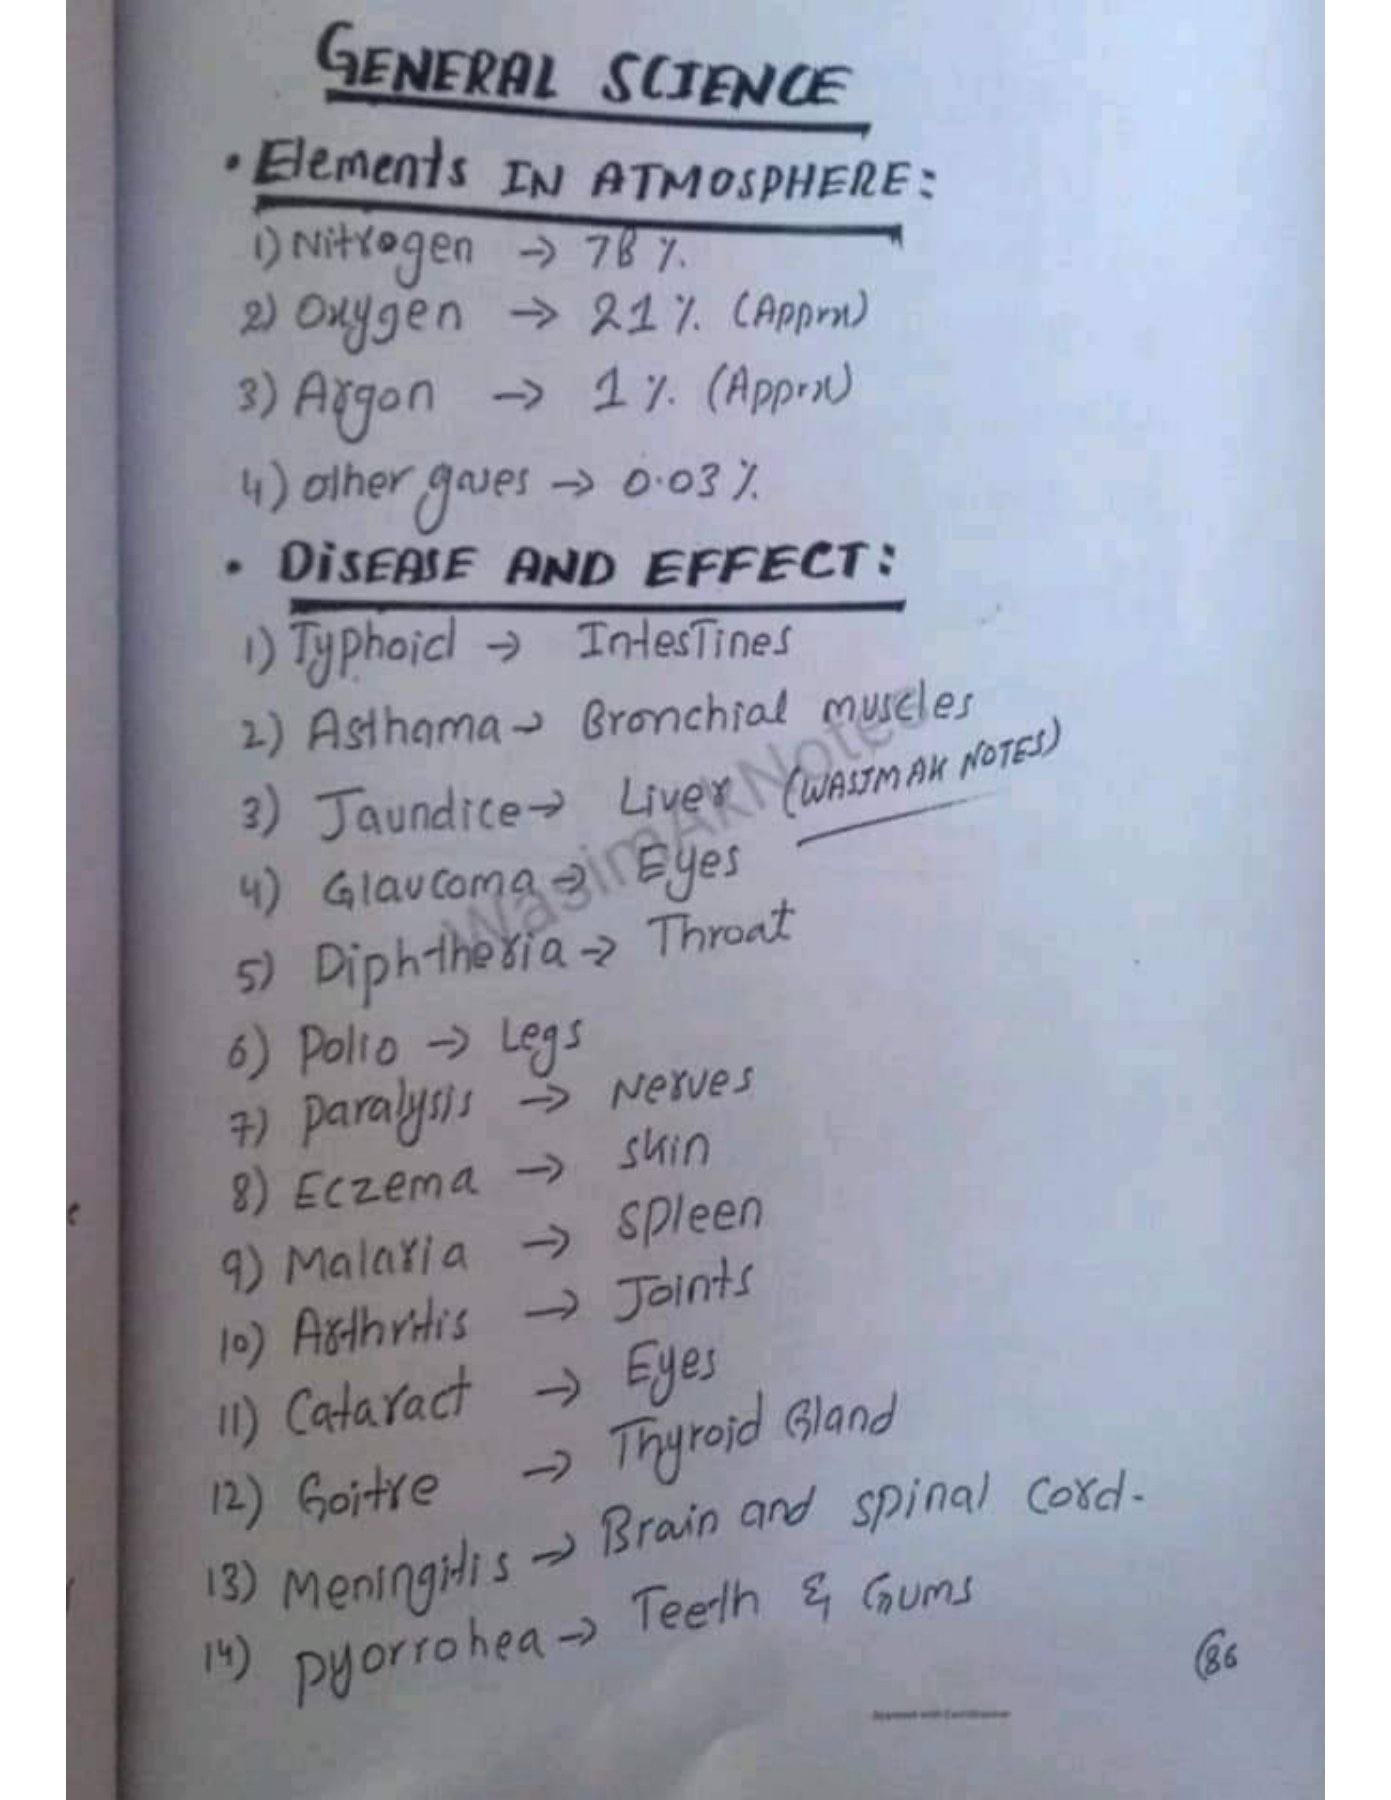 GENERAL SCIENCE
• Elements IN ATMOSPHERE:
1) Nitrogen → 78 %.
2) Oxygen → 21 %. (Apprx)
3) Argon → 1 %. (Apprx)
4) other gases → 0.03 %.
• DISEASE AND EFFECT:
1) Typhoid → Intestines
2) Asthama → Bronchial muscles
3) Jaundice → Liver (WASIMAK NOTES)
4) Glaucoma → Eyes
5) Diphtheria → Throat
6) Polio → Legs
7) Paralysis → Nerves
8) Eczema → Skin
9) Malaria → Spleen
10) Arthritis → Joints
11) Cataract → Eyes
12) Goitre → Thyroid Gland
13) Meningitis → Brain and spinal cord.
14) Pyorrohea → Teeth & Gums
86
WasimAkNotes
Scanned with CamScanner